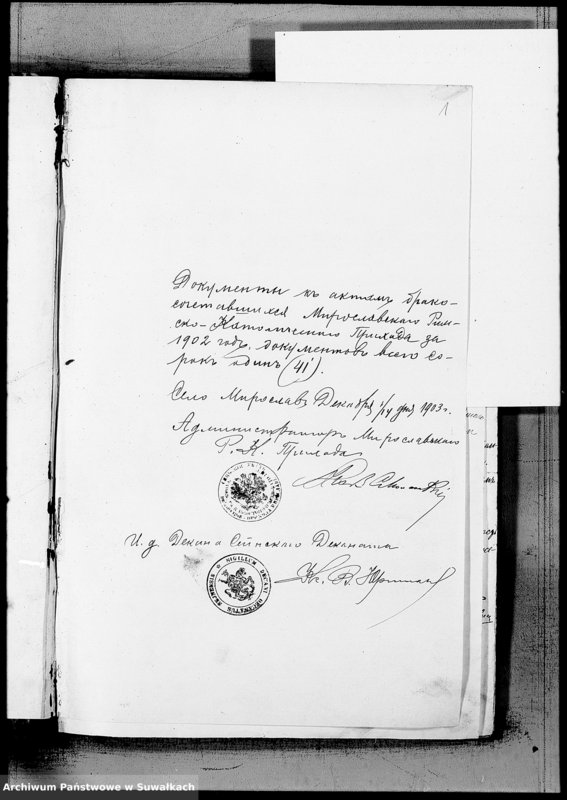 1
Документы къ актамъ брако-
сочетавшихся Мирославскаго Рим-
ско-Католическаго Прихода за
1902 годъ, документовъ всего со-
рокъ одинъ (41).
Село Мирославъ Декабря 1/14 дня 1903 г.
Администраторъ Мирославскаго
Р. К. Прихода
И. д. Декана Сейнскаго Деканата
Кс. В.
SIGILLUM DECANATUS SEJNENSIS
Archiwum Państwowe w Suwałkach